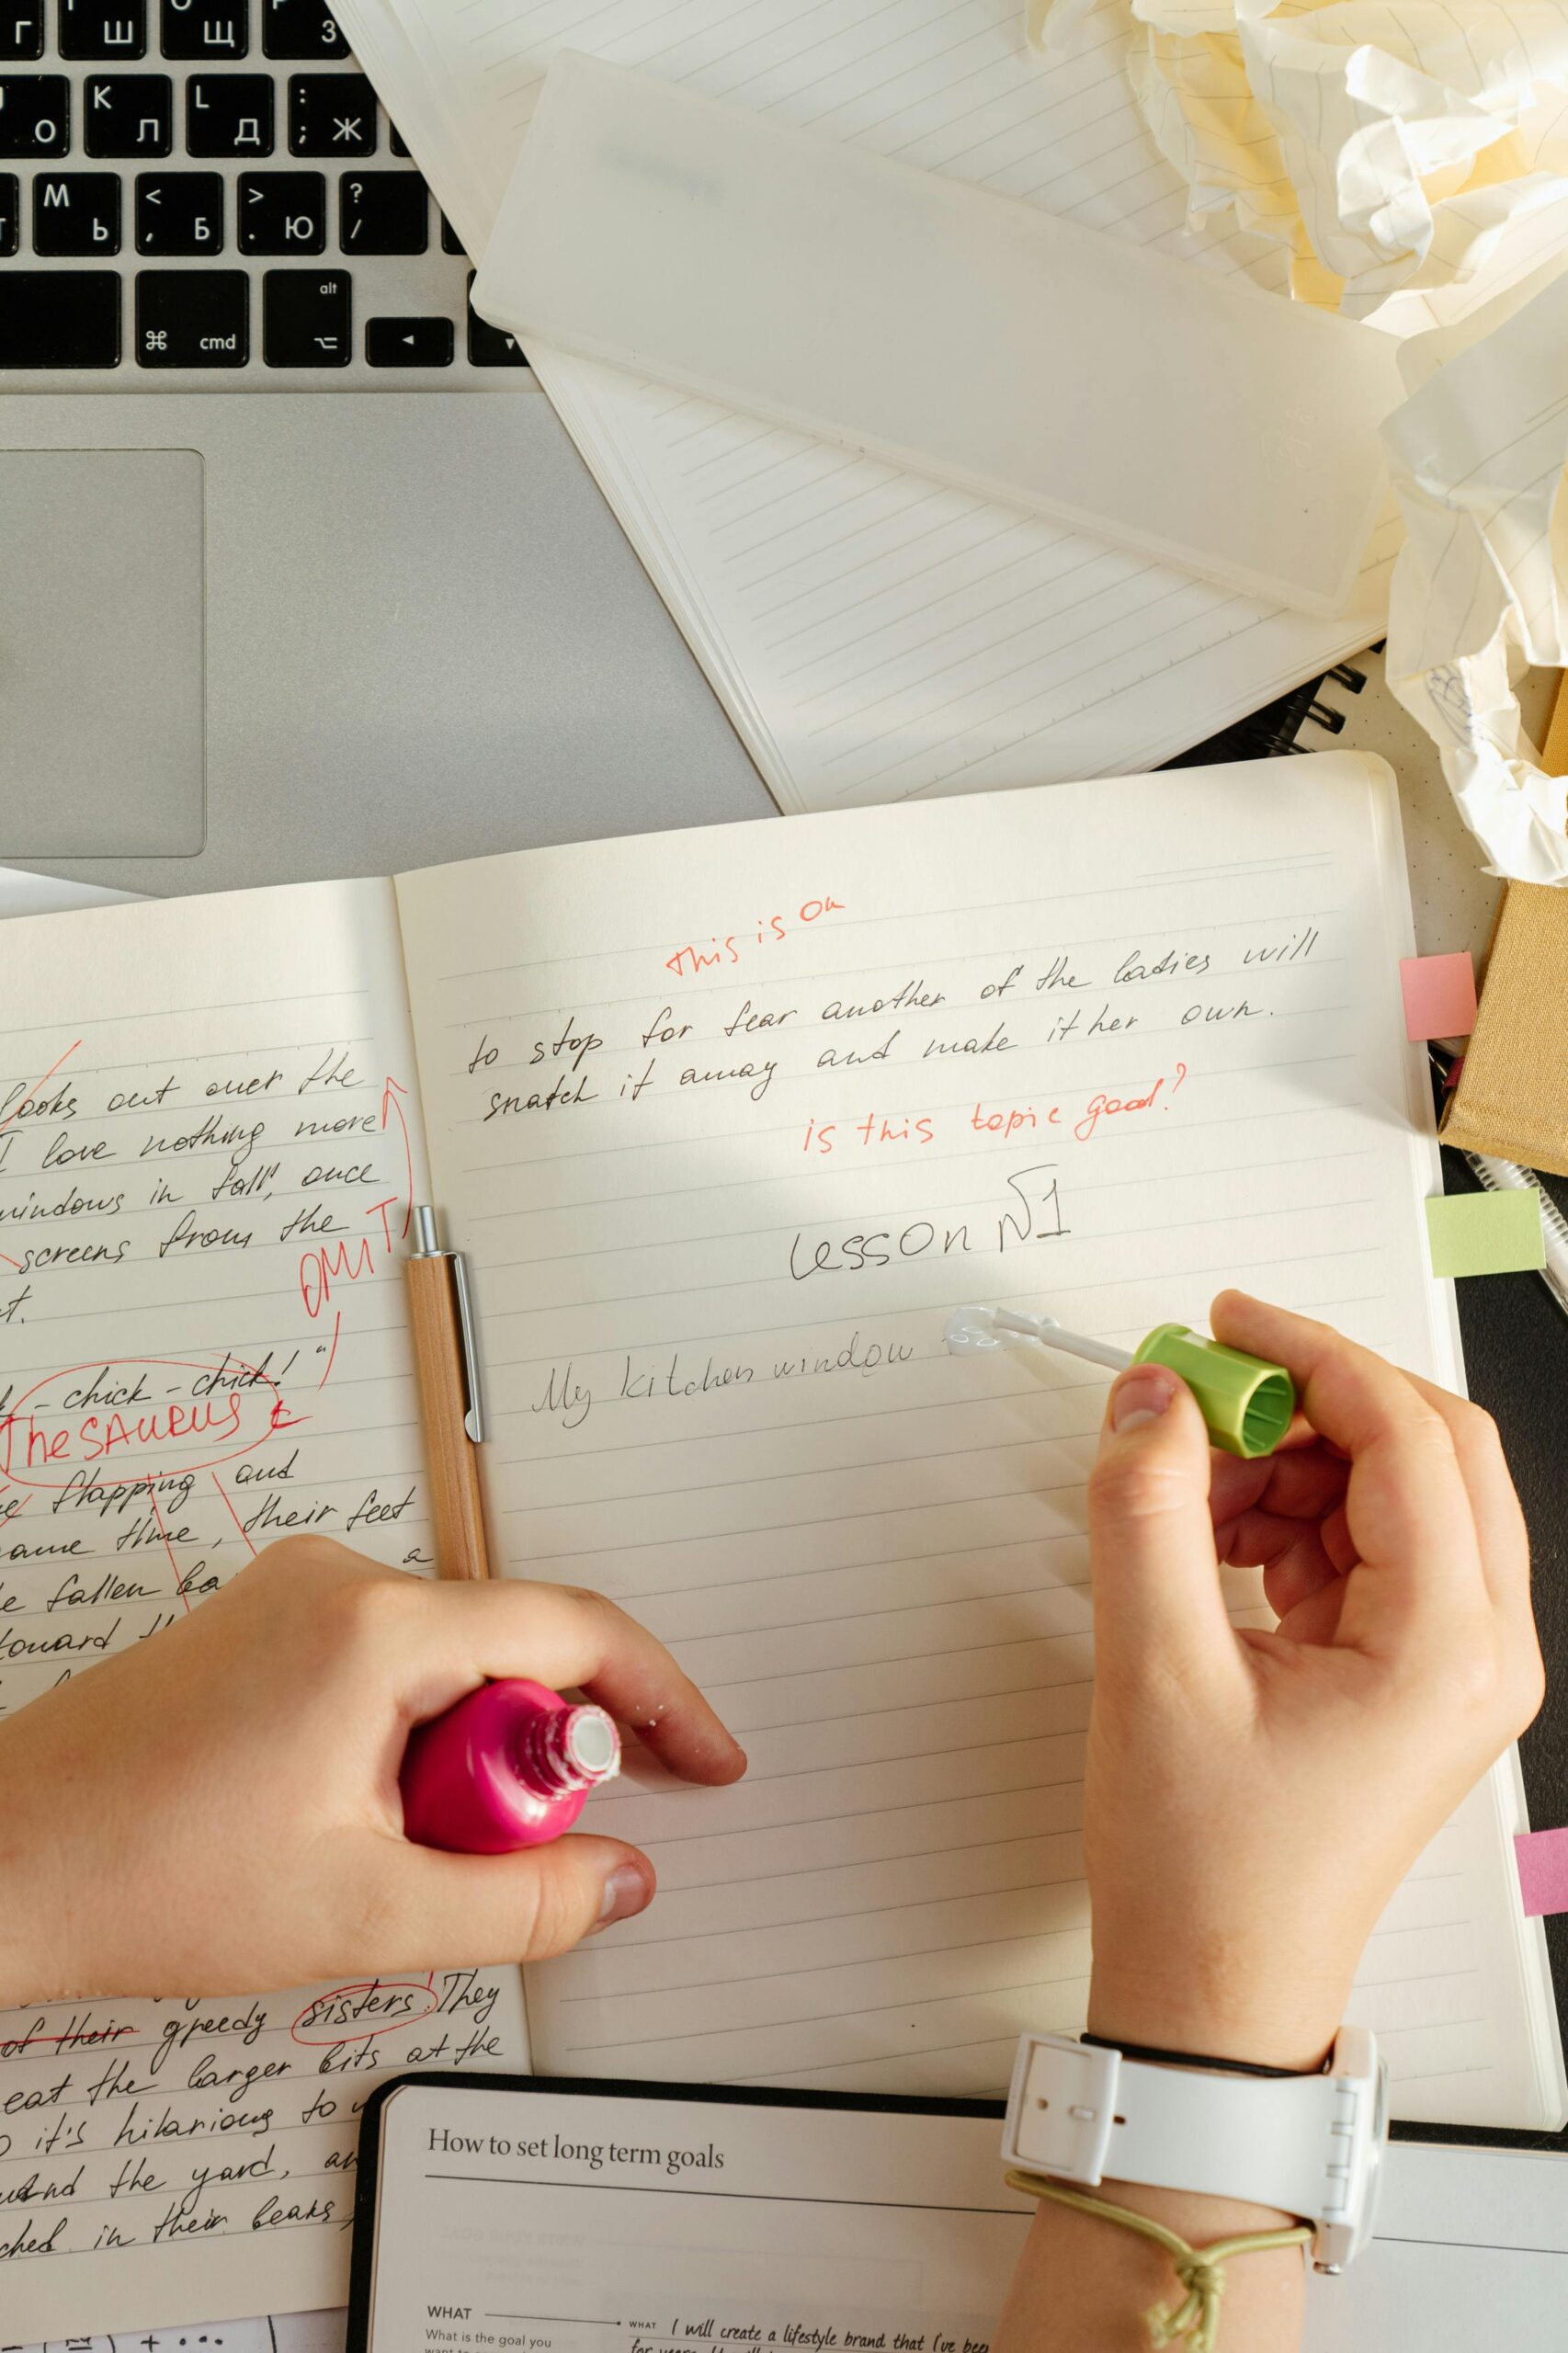 Г
Ш
Щ
З
О
K
Л
L
Д
:
;
Ж
M
Ь
<
,
Б
>
.
Ю
?
/
⌘ cmd
alt
⌥
◄
▼
looks out over the
I love nothing more
windows in fall, once
screens from the
OMIT
chick - chick!"
THESAURUS
flapping and
time, their feet
a
fallen ba
toward
of their greedy sisters. They
eat the larger bits at the
it's hilarious to
the yard, an
in their beaks,
this is on
to stop for fear another of the ladies will
snatch it away and make it her own.
is this topic good?
Lesson №1
My kitchen window
How to set long term goals
WHAT
What is the goal you
WHAT I will create a lifestyle brand that I've been